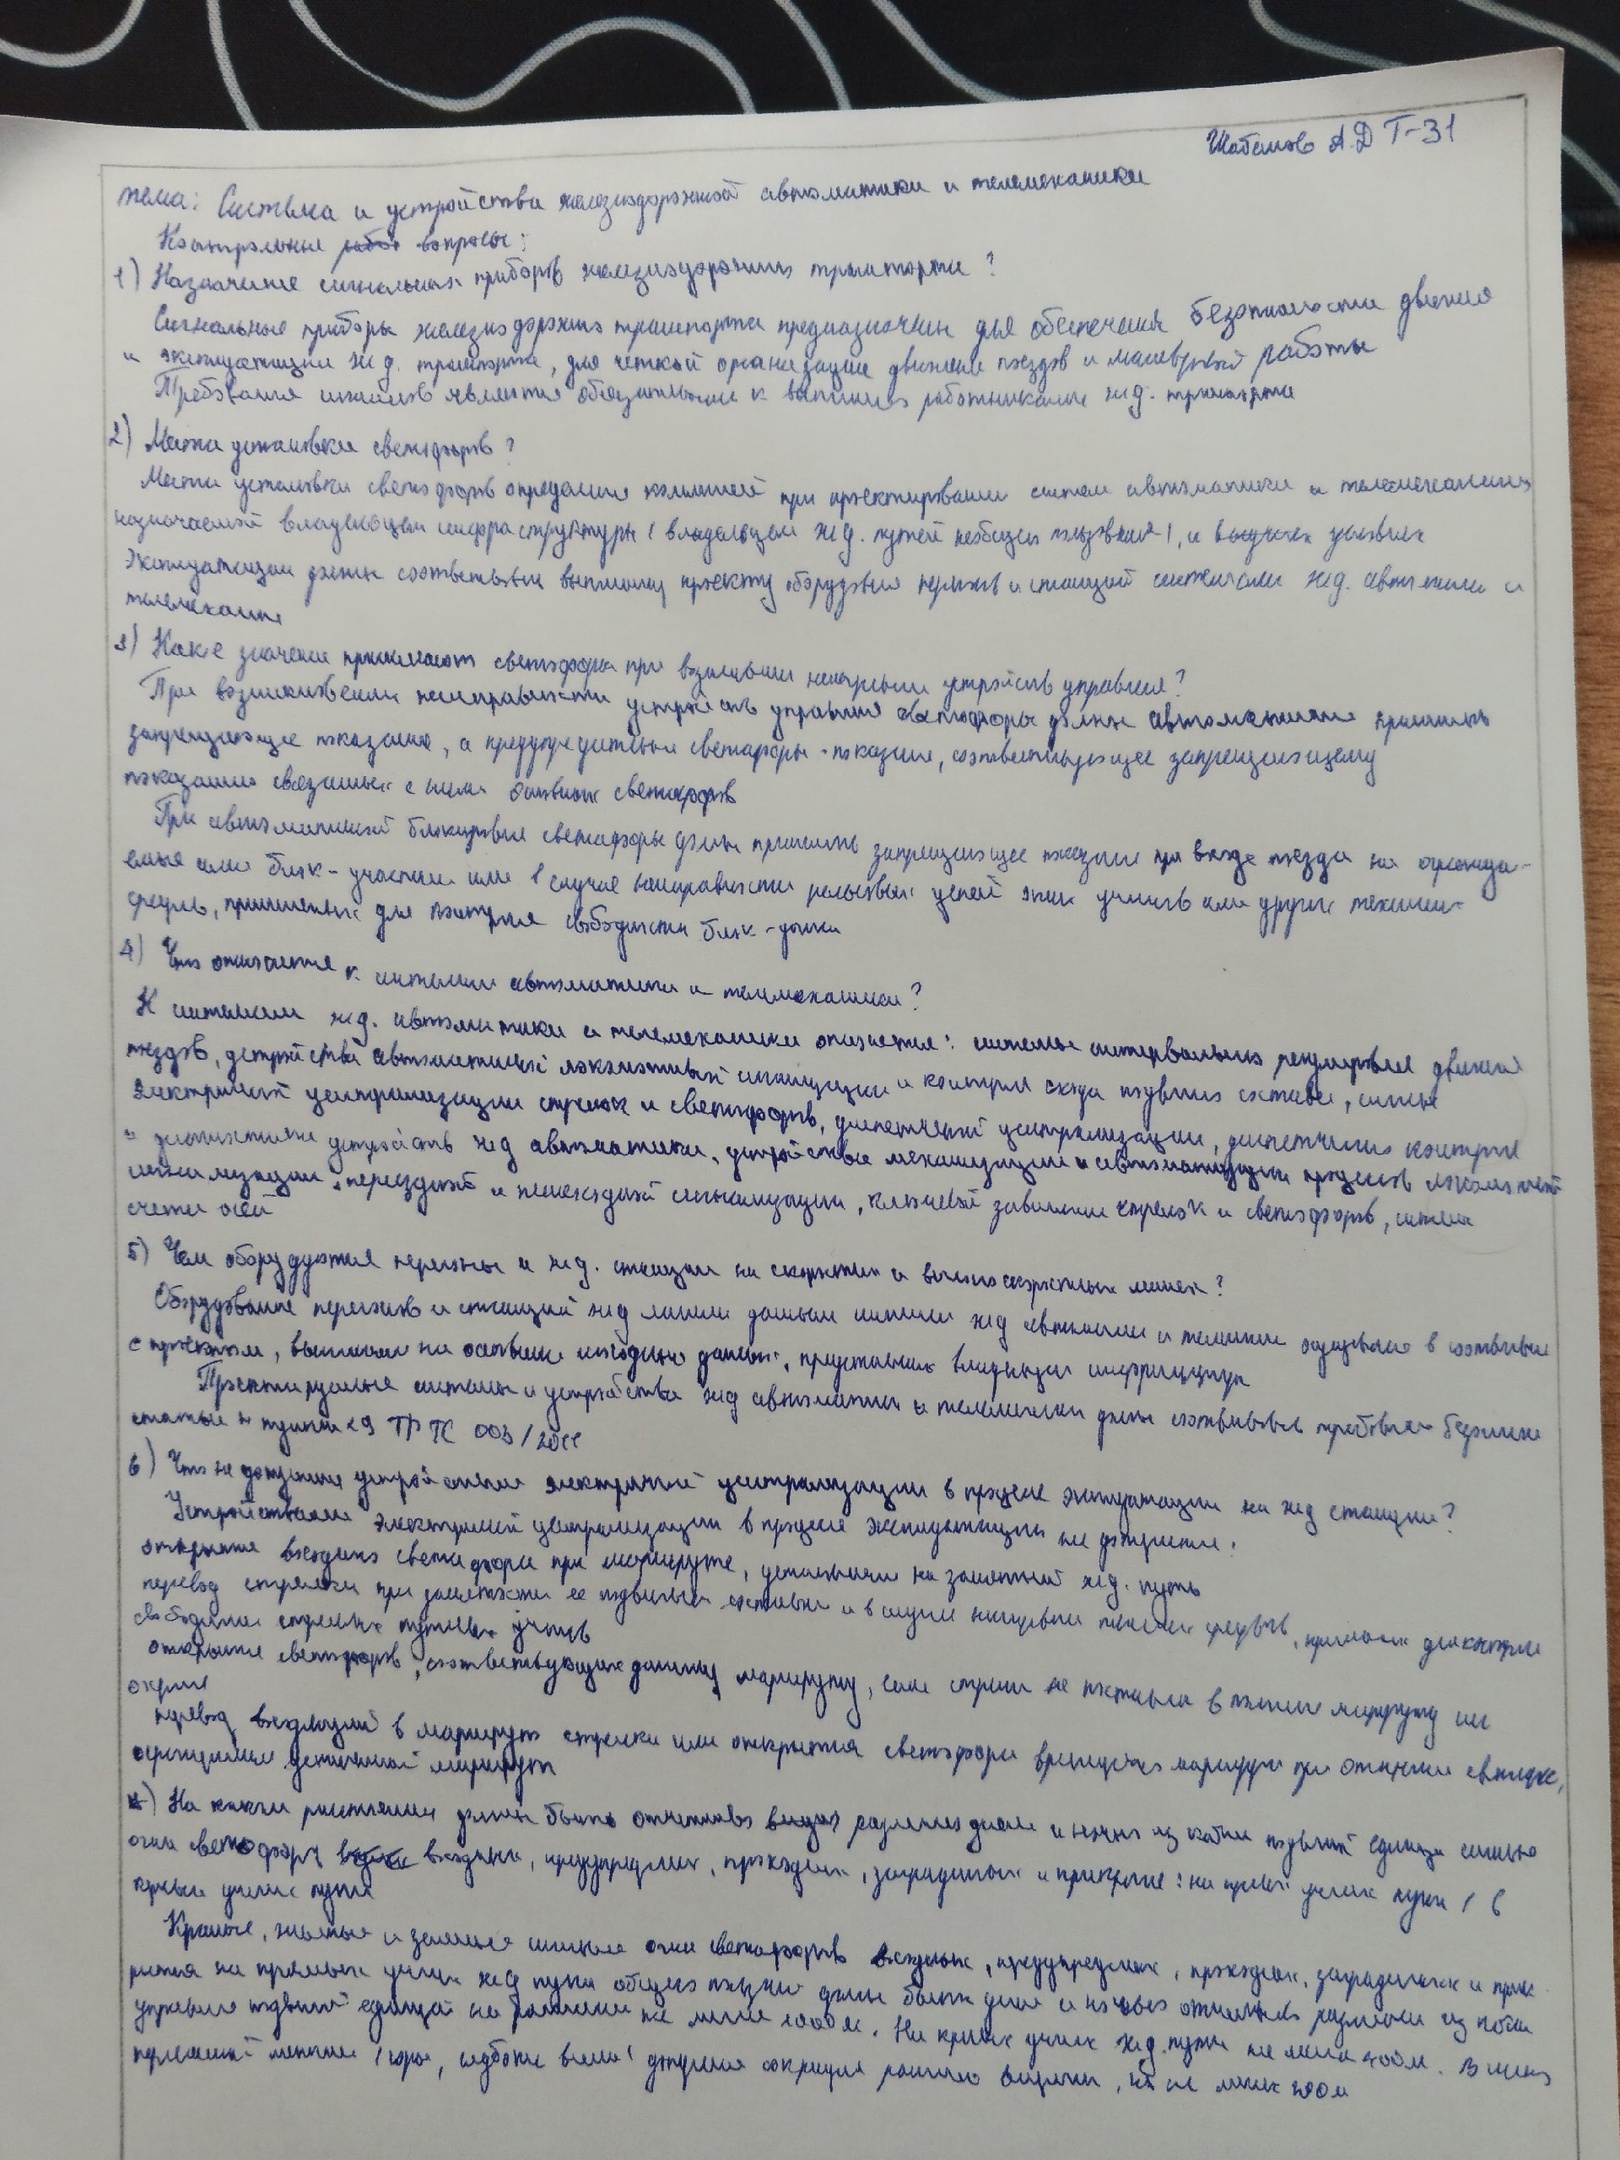 А.Д Т-31
тема: Система и устройства железнодорожной автоматики и телемеханики
Контрольные вопросы:
1) Назначение сигнальных приборов железнодорожного транспорта?
Сигнальные приборы железнодорожного транспорта предназначены для обеспечения безопасности движения
и эксплуатации ж.д. транспорта, для четкой организации движения поездов и маневровой работы
Требования сигналов является обязательными к выполнению работниками ж.д. транспорта
2) Места установки светофоров?
Места установки светофоров определяет комиссией при проектировании систем автоматики и телемеханики
назначаемой владельцем инфраструктуры (владельцем ж.д. путей необщего пользования), и в условиях
эксплуатации должны соответствовать проекту оборудования перегонов и станций системами ж.д. автоматики и
телемеханики
3) Какие значения принимают светофоры при возникновении неисправности устройств управления?
При возникновении неисправности устройств управления светофоры должны автоматически принимать
запрещающее показание, а предупредительные светофоры - показания, соответствующее запрещающему
показанию связанных с ними основных светофоров
При автоматической блокировке светофоры должны принимать запрещающее показание при входе поезда на огражда-
емые ими блок-участки или в случае неисправности рельсовых цепей этих участков или других технических
средств, применяемых для контроля свободности блок-участка
4) Что относится к системам автоматики и телемеханики?
К системам ж.д. автоматики и телемеханики относятся: системы интервального регулирования движения
поездов, устройства автоматической локомотивной сигнализации и контроля схода подвижного состава, системы
электрической централизации стрелок и светофоров, диспетчерской централизации, диспетчерского контроля
и диагностики устройств ж.д автоматики, устройства механизации и автоматизации процессов
переездной и пешеходной сигнализации, ключевой зависимости стрелок и светофоров, системы
счета осей
5) Чем оборудуются перегоны и ж.д. станции на скоростных и высокоскоростных линиях?
Оборудование перегонов и станций ж.д линии данными системами ж.д автоматики и в соответствии
с проектом, на основании исходных данных, владельцем инфраструктуры
Проектируемые системы и устройства ж.д автоматики и телемеханики должны соответствовать требованиям
статьи 4 пункта 29 ТР ТС 003/2011
6) Что не допускается устройствами электрической централизации в процессе эксплуатации на ж.д станции?
Устройствами электрической централизации в процессе эксплуатации не допускается:
открытие входного светофора при маршруте, установленном на занятый ж.д. путь
перевод стрелки при занятости ее подвижным составом и в случае неисправности технических средств, для контроля
свободности стрелочных путевых участков
открытие светофоров, соответствующих данному маршруту, если стрелки не поставлены в маршруту
перевод входящий в маршрут стрелки или открытия светофора враждебного маршрута при открытом светофоре,
ограждающем установленный маршрут
7) На каком расстоянии должны быть отчетливо различимы днем и ночью из кабины подвижной единицы сигнальные
огни светофоров входных, предупредительных, проходных, заградительных и прикрытия: на прямых участках пути / в
кривых участках пути
Красные, желтые и зеленые сигнальные огни светофоров входных, предупредительных, проходных, заградительных и прик-
рытия на прямых участках ж.д пути общего пользования должны быть днем и ночью отчетливо различимы из кабины
управления подвижной единицей на расстоянии не менее 1000 м. На кривых участках ж.д. пути не менее 400 м. В
местности (горы, глубокие выемки) допускается сокращение расстояния видимости, но не менее 200 м